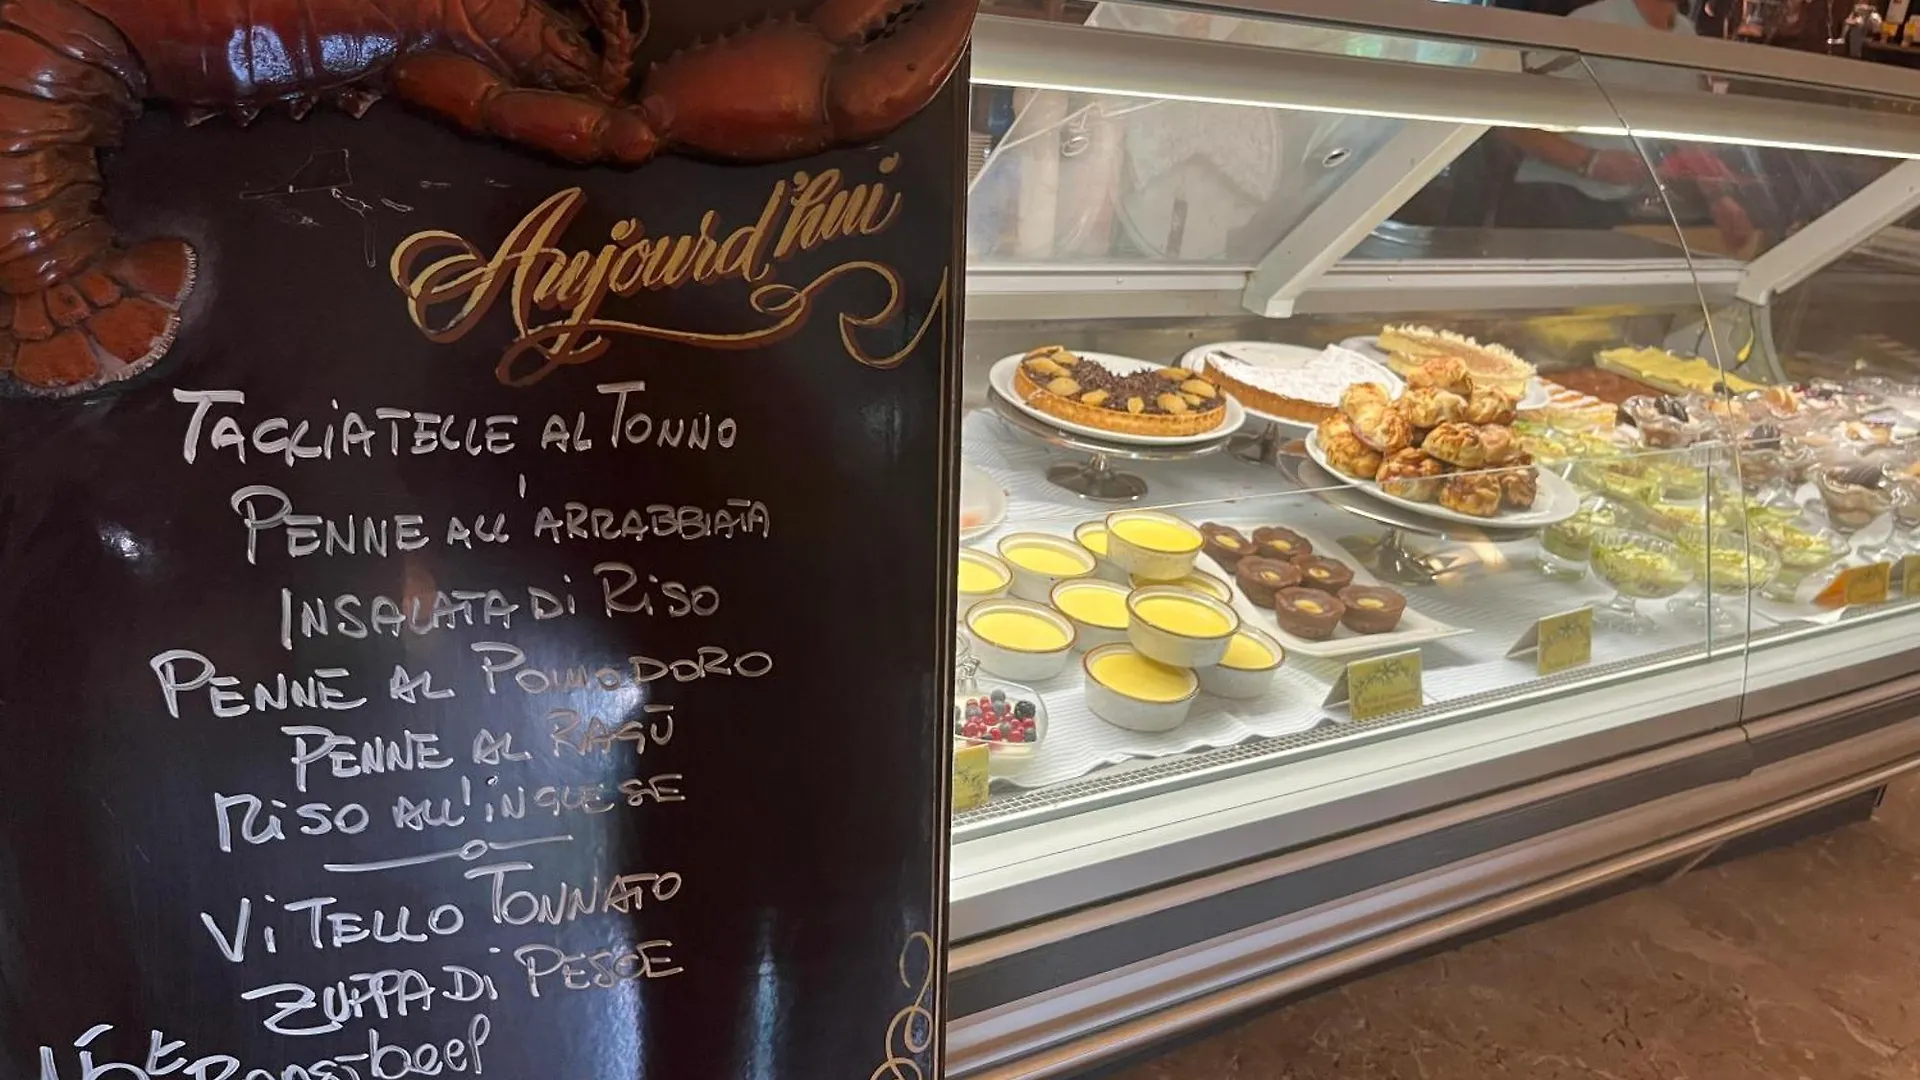 Aujourd'hui
TAGLIATELLE AL TONNO
PENNE ALL'ARRABBIATA
INSALATA DI RISO
PENNE AL POMODORO
PENNE AL RAGÙ
RISO ALL'INGLESE
VITELLO TONNATO
ZUPPA DI PESCE
Roast-beef